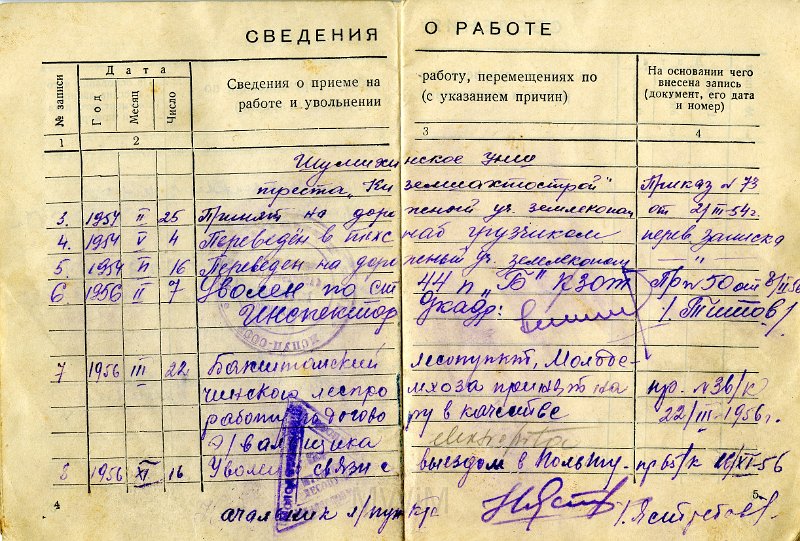 СВЕДЕНИЯ О РАБОТЕ
№ записи
Дата
Год
Месяц
Число
Сведения о приеме на работу, перемещениях по
работе и увольнении (с указанием причин)
На основании чего
внесена запись
(документ, его дата
и номер)
1 2 3 4
Шумихинское
треста „Кизелшахтострой"
Приказ № 73
3. 1954 II 25 Принят на дорожный уч. землекопом от 2/III-54г.
4. 1954 V 4 Переведён в грузчиком перев. записка
5. 1954 16 Переведен на дорожный уч. землекопом — " —
6 1956 II 7 Уволен по ст 44 п „Б" КЗОТ Пр № 50 от 8/II 56
Инспектор Окадр: /Титов/
7 1956 III 22 лесопункт, Молото-
чинского леспромхоза принят на пр. № 36/к
работу договору в качестве 22/III-1956г.
Э/вальщика
8 1956 XI 16 Уволен связи с выездом в Польшу. пр 65/к 16/XI-56
4 5
ачальник л/пункта